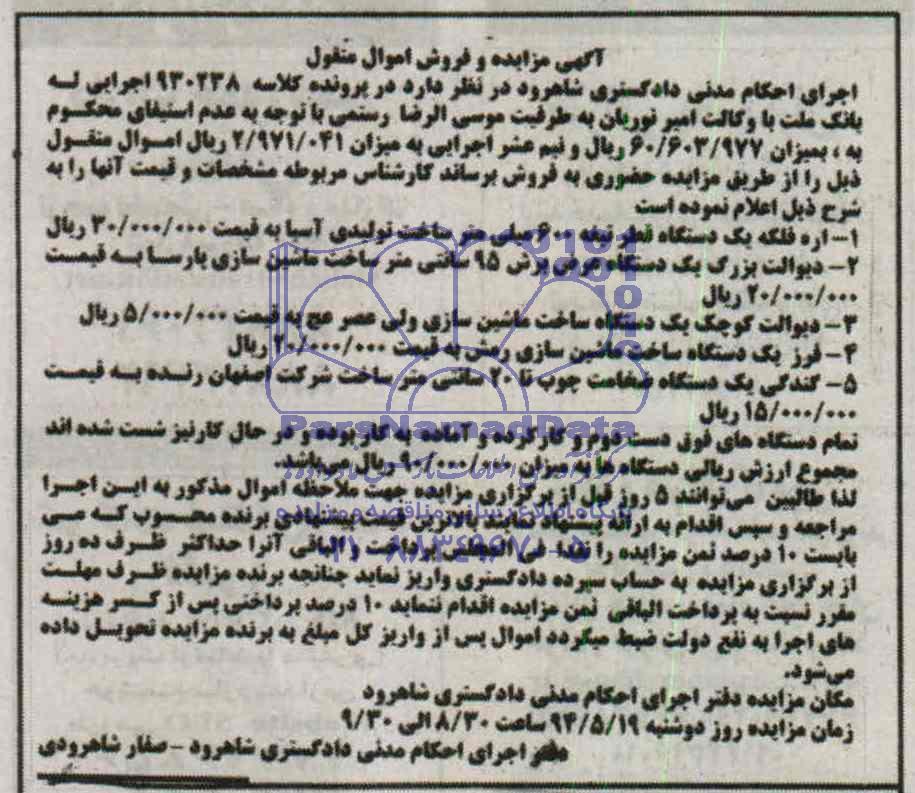 آگهی مزایده و فروش اموال منقول
اجرای احکام مدنی دادگستری شاهرود در نظر دارد در پرونده کلاسه ۹۳۰۲۳۸ اجرایی له
بانک ملت با وکالت امیر نوریان به طرفیت موسی الرضا رستمی با توجه به عدم استیفای محکوم
به ، بمیزان ۶۰/۶۰۳/۹۷۷ ریال و نیم عشر اجرایی به میزان ۲/۹۷۱/۰۴۱ ریال اموال منقول
ذیل را از طریق مزایده حضوری به فروش برساند کارشناس مربوطه مشخصات و قیمت آنها را به
شرح ذیل اعلام نموده است
۱- اره فلکه یک دستگاه قطر تیغه ۶۰۰ میلی متر ساخت تولیدی آسیا به قیمت ۳۰/۰۰۰/۰۰۰ ریال
۲- دیوالت بزرگ یک دستگاه عرض برش ۹۵ سانتی متر ساخت ماشین سازی پارسا به قیمت
۲۰/۰۰۰/۰۰۰ ریال
۳- دیوالت کوچک یک دستگاه ساخت ماشین سازی ولی عصر عج به قیمت ۵/۰۰۰/۰۰۰ ریال
۴- فرز یک دستگاه ساخت ماشین سازی رمش به قیمت ۲۰/۰۰۰/۰۰۰ ریال
۵- گندگی یک دستگاه ضخامت چوب تا ۲۰ سانتی متر ساخت شرکت اصفهان رنده به قیمت
۱۵/۰۰۰/۰۰۰ ریال
تمام دستگاه های فوق دست دوم و کارکرده و آماده به کار بوده و در حال کارنیز شست شده اند
مجموع ارزش ریالی دستگاه ها به میزان ۹۰/۰۰۰/۰۰۰ ریال می باشد.
لذا طالبین می‌توانند ۵ روز قبل از برگزاری مزایده جهت ملاحظه اموال مذکور به این اجرا
مراجعه و سپس اقدام به ارائه پیشنهاد نمایند بالاترین قیمت پیشنهادی برنده محسوب که می
بایست ۱۰ درصد ثمن مزایده را نقدا فی المجلس پرداخت و الباقی آنرا حداکثر ظرف ده روز
از برگزاری مزایده به حساب سپرده دادگستری واریز نماید چنانچه برنده مزایده ظرف مهلت
مقرر نسبت به پرداخت الباقی ثمن مزایده اقدام ننماید ۱۰ درصد پرداختی پس از کسر هزینه
های اجرا به نفع دولت ضبط میگردد اموال پس از واریز کل مبلغ به برنده مزایده تحویل داده
می‌شود.
مکان مزایده دفتر اجرای احکام مدنی دادگستری شاهرود
زمان مزایده روز دوشنبه ۹۴/۵/۱۹ ساعت ۸/۳۰ الی ۹/۳۰
دفتر اجرای احکام مدنی دادگستری شاهرود - صفار شاهرودی
ParsNamadData
پایگاه اطلاع رسانی مناقصه و مزایده
۰۲۱-۸۸۳۴۹۶۷۰-۵